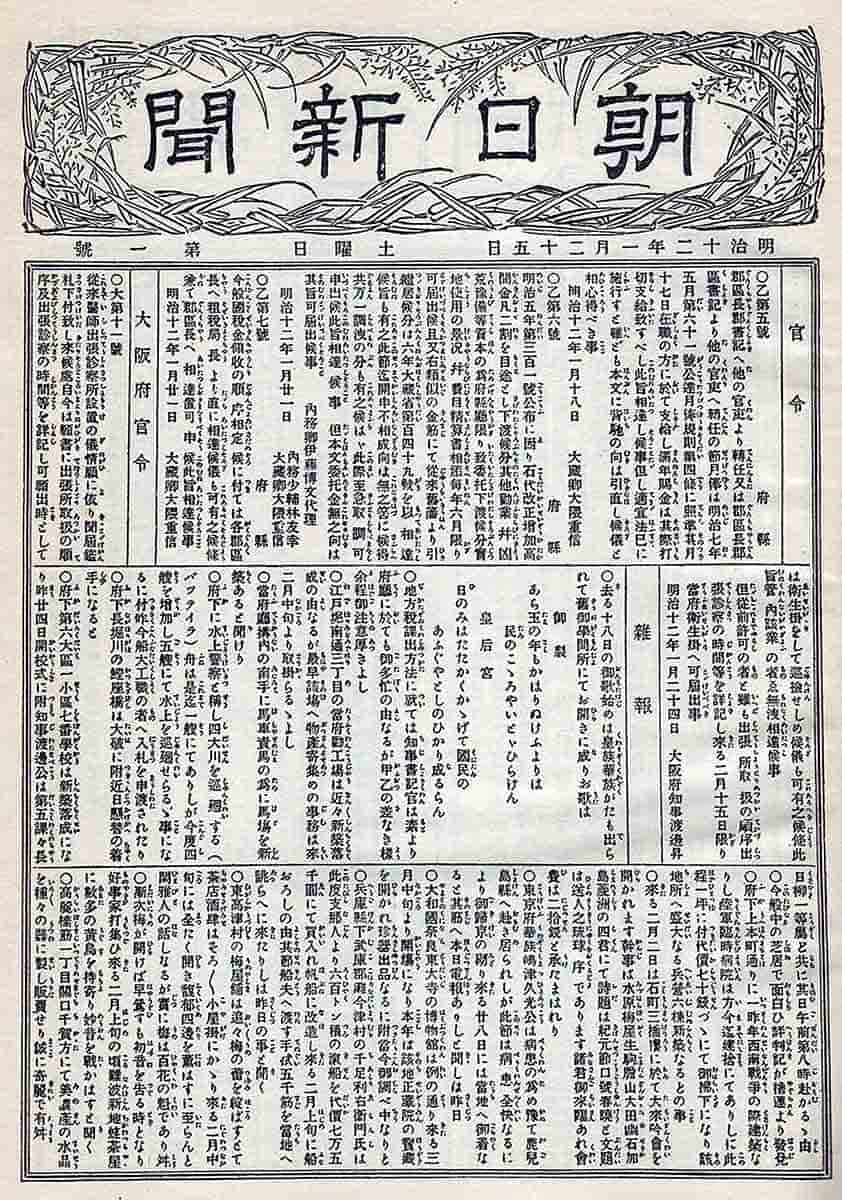 朝日新聞
明治十二年一月二十五日　土曜日　第一號
官令
○乙第五號　府縣
郡區長郡書記ヘ他の官吏より轉任又は郡區長郡
區書記より他の官吏ヘ轉任の節月俸は明治七年
五月第六十一號公達月俸規則第四條に照準其月
十七日在職の方に於て支給し滿年賜金は其際打
切支給致すべし此旨相達し候事但し適宜法巳に
施行すと雖ども本文に背馳の向は引直し候儀と
相心得べき事
明治十二年一月十八日　大藏卿大隈重信
○乙第六號　府縣
明治五年第三百一號公布に因り石代改正增加高
間金凡二割を目途とし下渡候分其他勸業并凶
荒豫備等資本の爲府縣廳限り致委托下渡候分實
地使用の景况并費目精算書相添每年六月限り
可届出候且又右類似の金筋にて從來舊藩より引
繼居候分は六年大藏省第百四十九號を以相達
候旨も有之此節迄開申不相成向は無之筈に候得
共万一調洩の分も有之候はゞ此際至急取調可
申出候此旨相達候事　但本文委托金無之向は
其旨可届出候事　内務卿伊藤博文代理
内務少輔林友幸
明治十二年一月廿一日　大藏卿大隈重信
○乙第七號　府縣
今般國税金領收の順序相定候に付ては各郡區
長ヘ租税局長より直に相達候儀も可有之候條
兼て郡區長ヘ相達置可申候此旨相達候事
明治十二年一月廿一日　大藏卿大隈重信
大阪府官令
○大第十一號
從來醫師出張診察所設置の儀情願に依り聞屆鑑
札下付致し來候處自今は願書に出張所取扱の順
序及出張診察の時間等を詳記し可願出時として
は衛生掛をして巡撿せしめ候儀も可有之候條此
旨管内醫業の者ゑ無洩相達候事
但從前許可の者と雖も出張所取扱の順序出
張診察の時間等を詳記し來る二月十五日限り
當府衛生掛ヘ可届出事
明治十二年一月二十四日　大阪府知事渡邊昇
雜報
○去る十八日の御歌始めは皇族華族がたも出ら
れて舊御學問所にてお開きに成りお歌は
御製
あら玉の年もかはりぬけふよりは
民のこゝろやいとゞひらけん
皇后宮
日のみはたたかくかゝげて國民の
あふぐやとしのひかり成るらん
○地方税課出方法に就ては知事書記官は素より
府廳に於ても御多忙の由なるが甲乙の差なき様
余程御注意厚きよし
○江戸堀南通三丁目の當府勸工塲は近々新築落
成の由なるが最早該塲ヘ物產寄集めの事務は來
二月中旬より取掛らるゝよし
○當府廳搆内の南手に馬車賣馬の爲に馬塲を新
築あると聞けり
○府下に水上警察と稱し四大川を巡廻する（
バツテイラ）舟は是迄一艘にてありしが今度四
艘を增加し五艘にて水上を巡廻せらるゝ事にな
るに付昨今船大工職の者ヘ入札を申渡されたり
○府下長堀川の鰹座橋は大破に附近日懸替の着
手になると
○府下第六大區一小區七番學校は新築落成にな
り昨廿四日開校式に附知事渡邊公は第五課々長
日柳一等屬と共に其日午前第八時赴かるゝ由
○今般中の芝居で面白ひ評判記が揃運より發兌
○府下上本町通りに一昨年西南戰爭の際建築な
りし陸軍臨時病院は方今迄建捨にてありしに此
程一坪に付代價七十錢づゝにて御拂下になり該
地所ヘ盛大なる兵營六棟新築なるとの事
○來る二月二日は石町三橋樓に於て大來吟會を
開かれます幹事は水原梅屋生駒膽山太田幽石加
島菱洲の四君にて詩題は紀元節口號春曉と文題
は送人之琉球序であります諸君御來躍あれ會
費は二拾錢と承たまはれり
○東京府華族嶋津久光公は病患の爲め豫て鹿兒
島縣ヘ赴き居られしが此節は病患全快なるに
より御歸京の剏り來る廿八日には當地ヘ御着な
ると其筋ヘ本日電報ありしと聞しは昨日
○大和國奈良東大寺の博物館は例の通り來る三
月中旬より開塲になり本年は該地正藏院の寶藏
を開かれ珍器出品なるに附當今御調べ中なりと
○兵庫縣下武庫郡麻今津村の千足利右衛門氏は
此度支那人より六百トン積の滊船を代價七万五
千圓にて買入れ帆船に改造し來る二月上旬に船
おろしの由其節船夫ヘ渡す手拭五千筋を當地ヘ
誂らヘに來たりしは昨日の事と聞く
○東高津村の梅屋鋪は追々梅の蕾を綻ばすとて
茶店酒肆はそろ〱小屋掛にかゝり來る二月中
旬には全たく開き馥郁四邊を薫はすに至らんと
閑雅人の話しなるが實に梅は百花の魁であり舛
○漸次梅が開けば早鶯も初音を告る時となり
好事家打集ひ來る二月上旬の頃難波新地蛙茶屋
に數多の黃鳥を持寄り妙音を戰かはすと聞く
○高麗橋筋一丁目關口千賀方にて美濃產の水晶
を種々の器に製し販賣せり該に奇麗で有舛